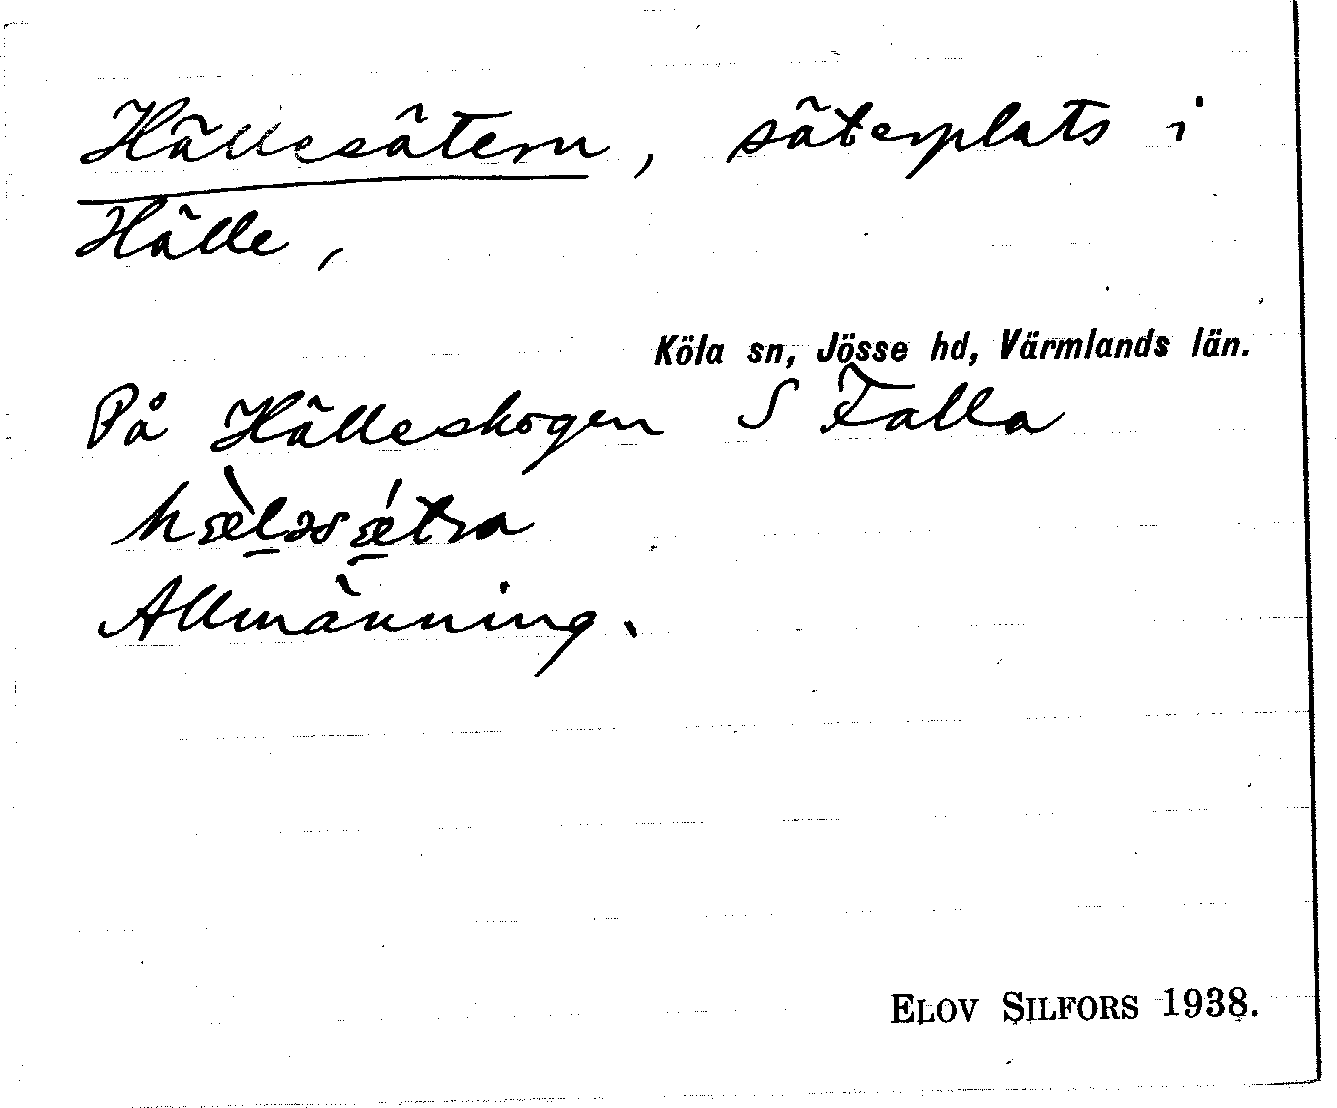 Hällesätern, säterplats i
Hälle,
Köla sn, Jösse hd, Värmlands län.
På Hälleskogen S Falla
hæ̀l̠əsǽ̠tra
Allmänning.
ELOV SILFORS 1938.